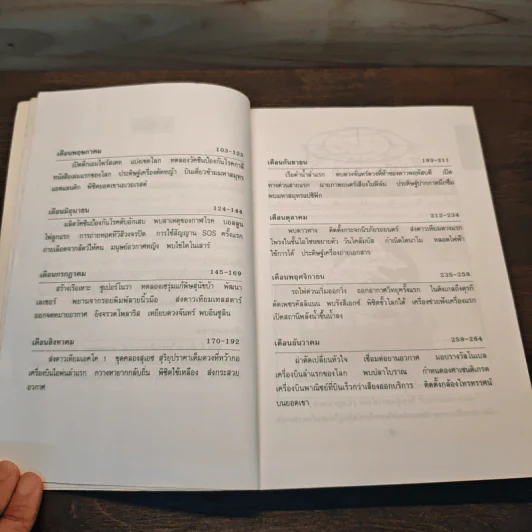 เดือนพฤษภาคม 103-123
เปิดตึกเอมไพร์สเตท แบ่งเขตโลก ทดลองวัคซีนป้องกันโรคกาฬ
หนังสือเล่มแรกของโลก ประดิษฐ์เครื่องตัดหญ้า บินเดี่ยวข้ามมหาสมุทร
แอตแลนติก พิชิตยอดเขาเอเวอเรสต์
เดือนมิถุนายน 124-144
ผลิตวัคซีนป้องกันโรคตับอักเสบ พบสาเหตุของกาฬโรค บอลลูน
ไฟลูกแรก การถ่ายทอดทีวีสีวงจรปิด การใช้สัญญาณ SOS ครั้งแรก
ถ่ายเลือดจากสัตว์ให้คน มนุษย์อวกาศหญิง พบไซโคโนเสาร์
เดือนกรกฎาคม 145-169
สร้างเรือเหาะ ซูเปอร์โนวา ทดลองเซรุ่มแก้พิษสุนัขบ้า พัฒนา
เลเซอร์ พยานจากรอยพิมพ์ลายนิ้วมือ ส่งดาวเทียมเทลสตาร์
ออกจดหมายอากาศ อังจรวดโพลาริส เหยียบดวงจันทร์ พบอินซูลิน
เดือนสิงหาคม 170-192
ส่งดาวเทียมเอคโค 1 ขุดคลองสุเอซ สุริยุปราคาเต็มดวงที่หว้ากอ
เครื่องบินไอพ่นลำแรก กวางหายากกลับถิ่น พิชิตไข้เหลือง ส่งกระสวย
อวกาศ
เดือนกันยายน 193-211
เรือดำน้ำลำแรก พบดวงจันทร์ดวงที่ห้าของดาวพฤหัสบดี เปิด
ทางด่วนสายแรก ฉายภาพยนตร์เสียงในฟิล์ม ประดิษฐ์ปากกาหมึกซึม
พบมหาสมุทรแปซิฟิก
เดือนตุลาคม 212-234
พบดาวหาง ติดตั้งกระจกนิรภัยรถยนต์ ส่งดาวเทียมดวงแรก
โพรงในชั้นโอโซนขยายตัว วันโคลัมบัส กำเนิดไดนาโม หลอดไฟฟ้า
ใช้การได้ ประดิษฐ์เครื่องถ่ายเอกสาร
เดือนพฤศจิกายน 235-258
รถไฟด่วนเริ่มออกวิ่ง ออกอากาศวิทยุครั้งแรก ในดังแกลถึงธุรกิจ
ตัดเพชรคัลลิแนน พบริงลีเอกซ์ พิชิตขั้วโลกใต้ เครื่องช่วยฟังเครื่องแรก
เปิดสถานีพลังน้ำขึ้นน้ำลง
เดือนธันวาคม 259-284
ผ่าตัดเปลี่ยนหัวใจ เชื่อมต่อยานอวกาศ มอบรางวัลโนเบล
เครื่องบินลำแรกของโลก พบปลาโบราณ กำหนดองศาเซนติเกรด
เครื่องบินพาณิชย์ที่บินเร็วกว่าเสียงออกบริการ ติดตั้งกล้องโทรทรรศน์
บนยอดเขา